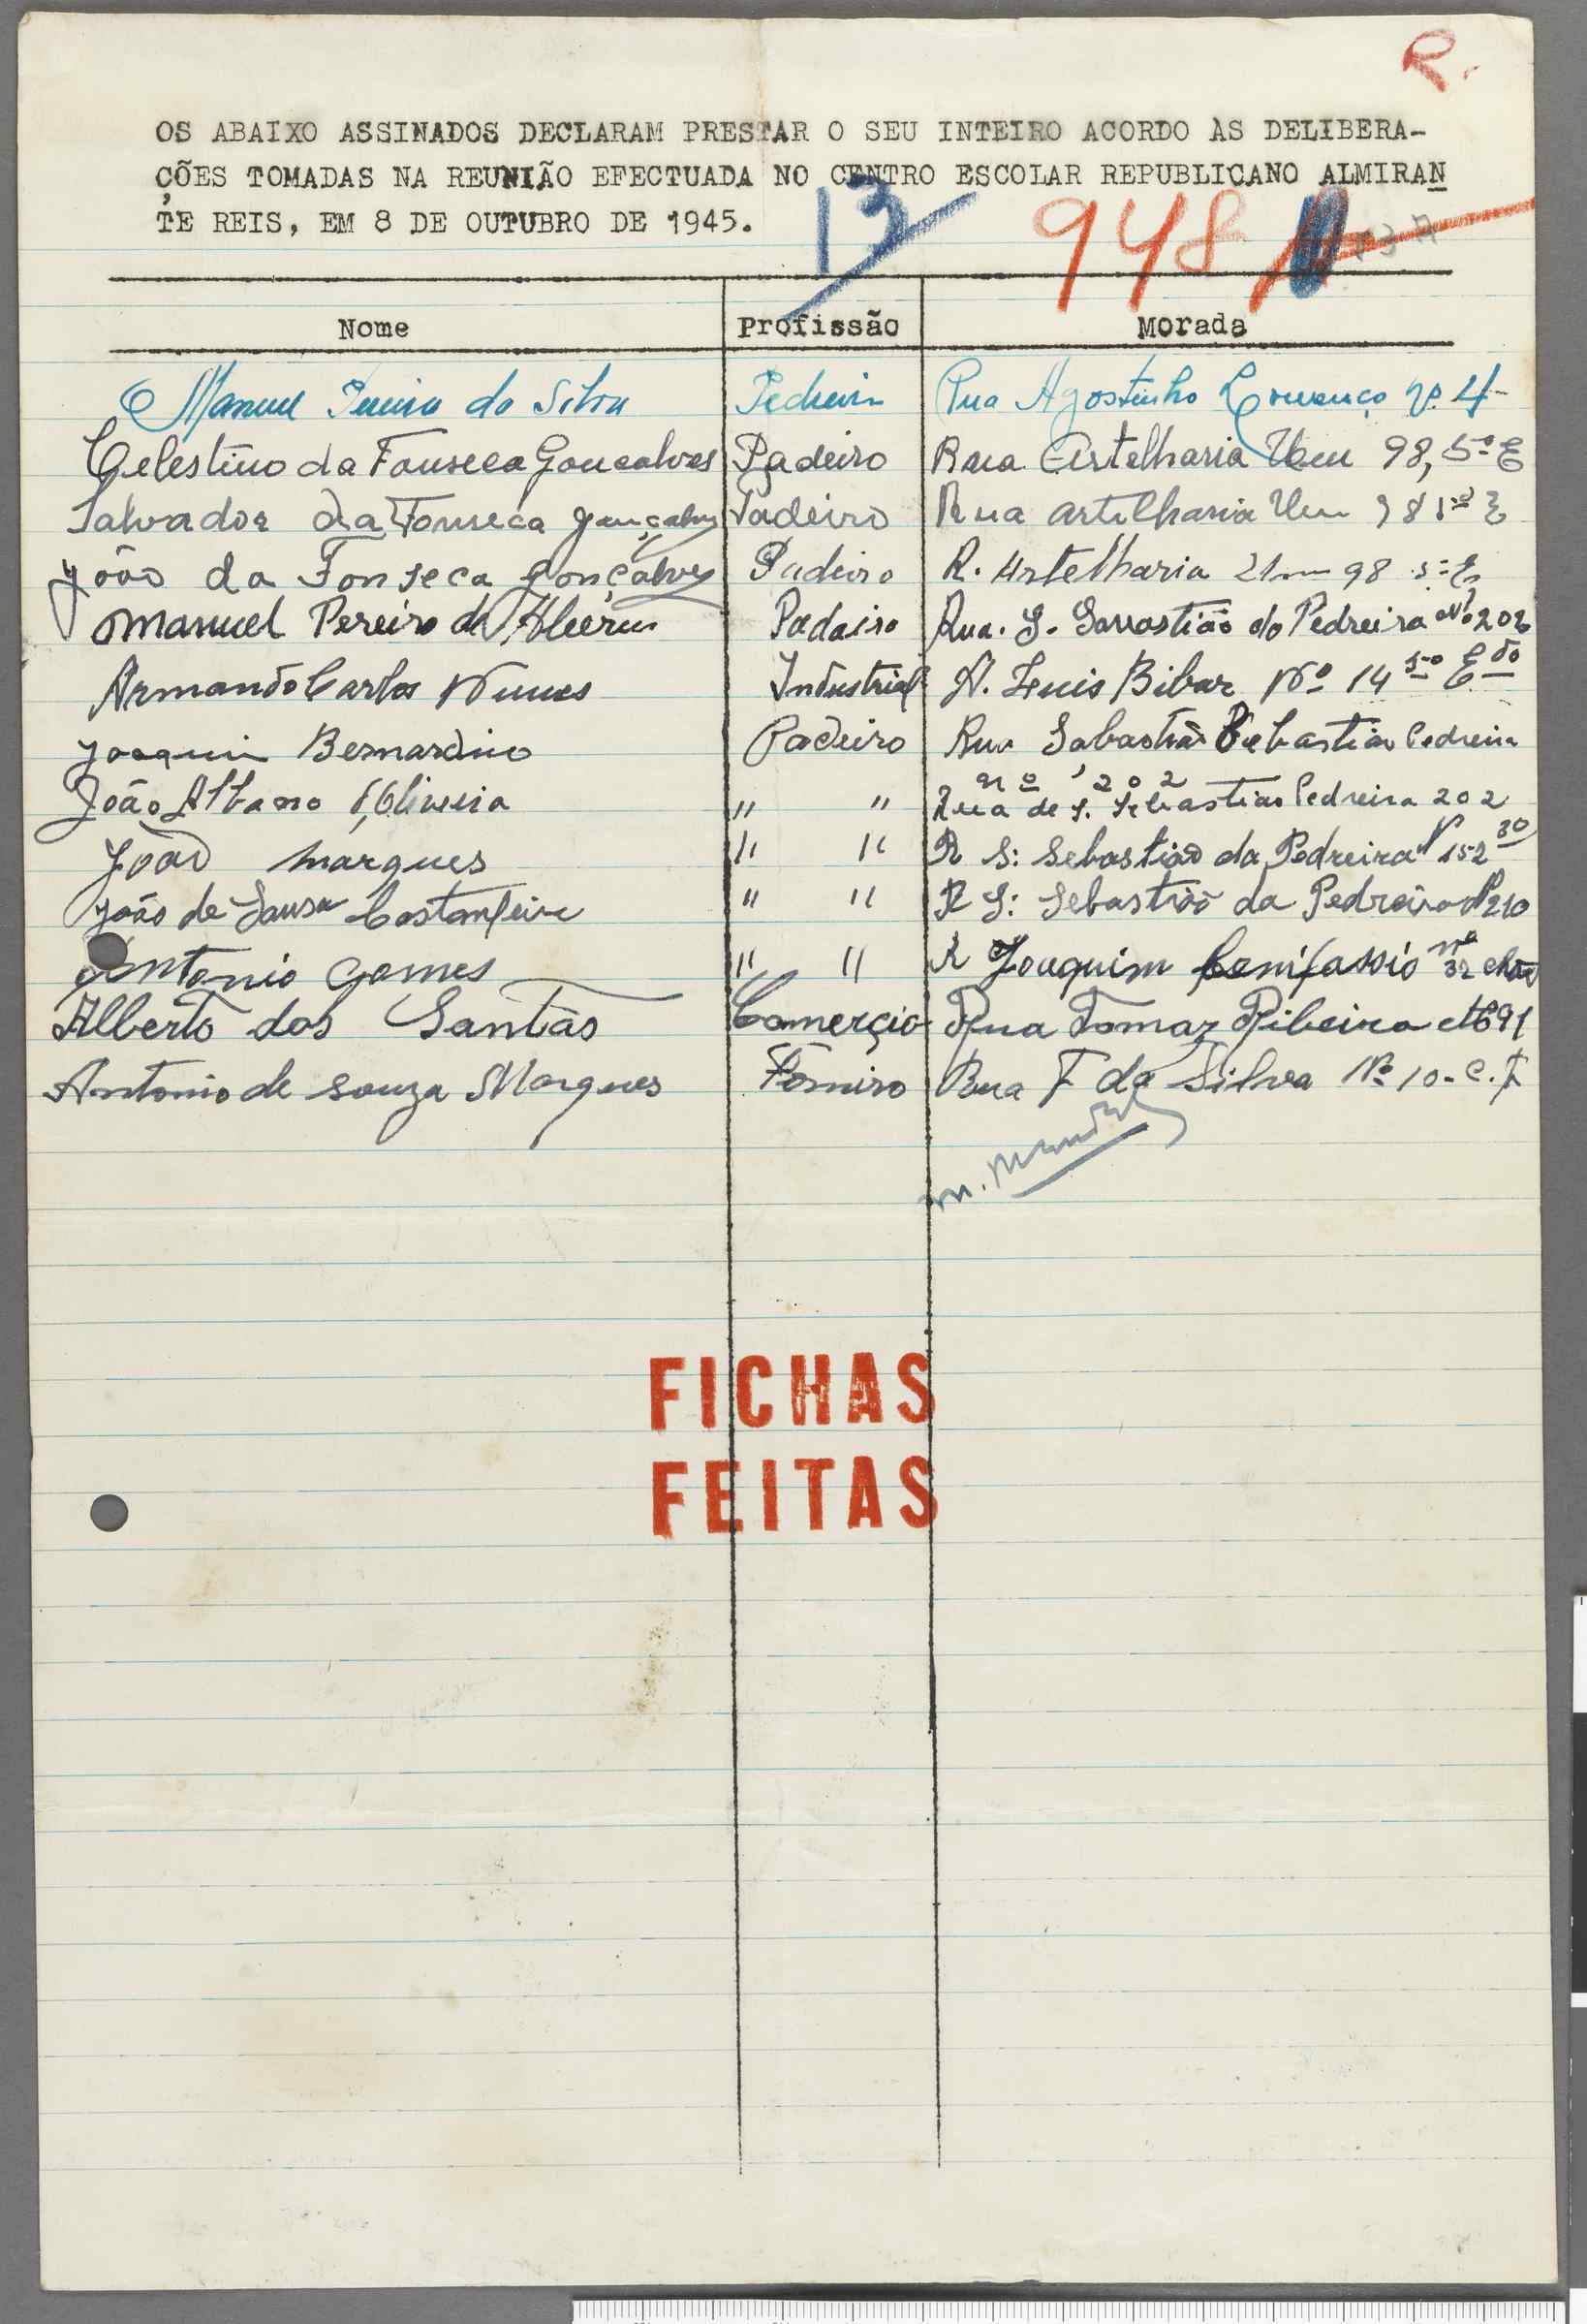 R.
OS ABAIXO ASSINADOS DECLARAM PRESTAR O SEU INTEIRO ACORDO ÀS DELIBERA-
ÇÕES TOMADAS NA REUNIÃO EFECTUADA NO CENTRO ESCOLAR REPUBLICANO ALMIRAN
TE REIS, EM 8 DE OUTUBRO DE 1945.
13 948
Nome Profissão Morada
Manuel Pereira da Silva Pedreiro Rua Agostinho Lourenço Nº 4
Celestino da Fonseca Goncalves Padeiro Rua Artelharia Um 98, 5º E
Salvador da Fonseca Gonçalves Padeiro Rua Artilharia Um 98 5º E
João da Fonseca Gonçalves Padeiro R. Artelharia 98
Manuel Pereira de Padairo Rua. S. do Pedreira Nº 202
Armando Carlos Nunes Industrial Luis Bibar Nº 14
Joaquim Bernardino Padeiro Rua Sabastià Pedreira
nº 202
João Albano " " Rua de S. Sebastiao Pedreira 202
João Marques " " R S: Sebastião da Pedreira Nº 152
João de Sousa " " R S: Sebastião da Pedreira Nº 210
Antonio Gomes " " R Joaquim Bonifassio nº 32
Alberto dos Santos Comerçio Rua Tomaz Ribeiro Nº 91
Antonio de Souza Marques Forniro Rua F da Silva Nº 10-C.
FICHAS
FEITAS